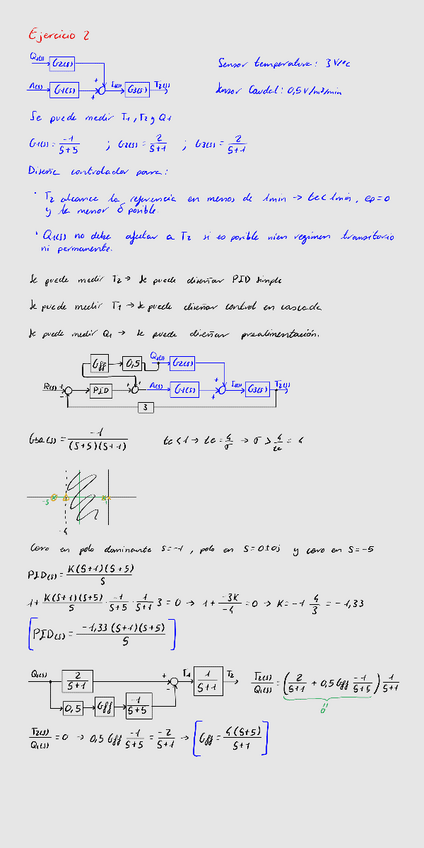 Ejercicio 2
Q1(s) G2(s)
Sensor temperatura: 3 V/ºC
A(s) G1(s) + + T1(s) G3(s) T2(s)
Sensor caudal: 0,5 V/m³/min
Se puede medir T1, T2 y Q1
G1(s) = -1/(S+5) ; G2(s) = 2/(S+1) ; G3(s) = 2/(S+1)
Diseña controlador para:
· T2 alcance la referencia en menos de 1min → te < 1min, ep=0
y la menor δ posible.
· Q1(s) no debe afectar a T2 si es posible ni en regimen transitorio
ni permanente.
Se puede medir T2 → Se puede diseñar PID simple
Se puede medir T1 → Se puede diseñar control en cascada
Se puede medir Q1 → Se puede diseñar prealimentación.
Gff 0,5 Q1(s) G2(s)
R(s) PID A(s) G1(s) T1(s) G3(s) T2(s)
3
(s) = -1/((S+5)(S+1)) te < 1 → te = 4/σ → σ > 4/te = 4
-5 -1
-4
Cero en polo dominante S=-1, polo en S=0 y cero en S=-5
PID(s) = K(S+1)(S+5)/S
1 + K(S+1)(S+5)/S · -1/(S+5) · 1/(S+1) · 3 = 0 → 1 + -3K/-4 = 0 → K = -1 · 4/3 = -1,33
[PID(s) = -1,33(S+1)(S+5)/S]
Q1(s) 2/(S+1) + - T1 1/(S+1) T2 T2(s)/Q1(s) = (2/(S+1) + 0,5 Gff -1/(S+5)) 1/(S+1)
0,5 Gff -1/(S+5) 0
T2(s)/Q1(s) = 0 → 0,5 Gff -1/(S+5) = -2/(S+1) → [Gff = 4(S+5)/(S+1)]